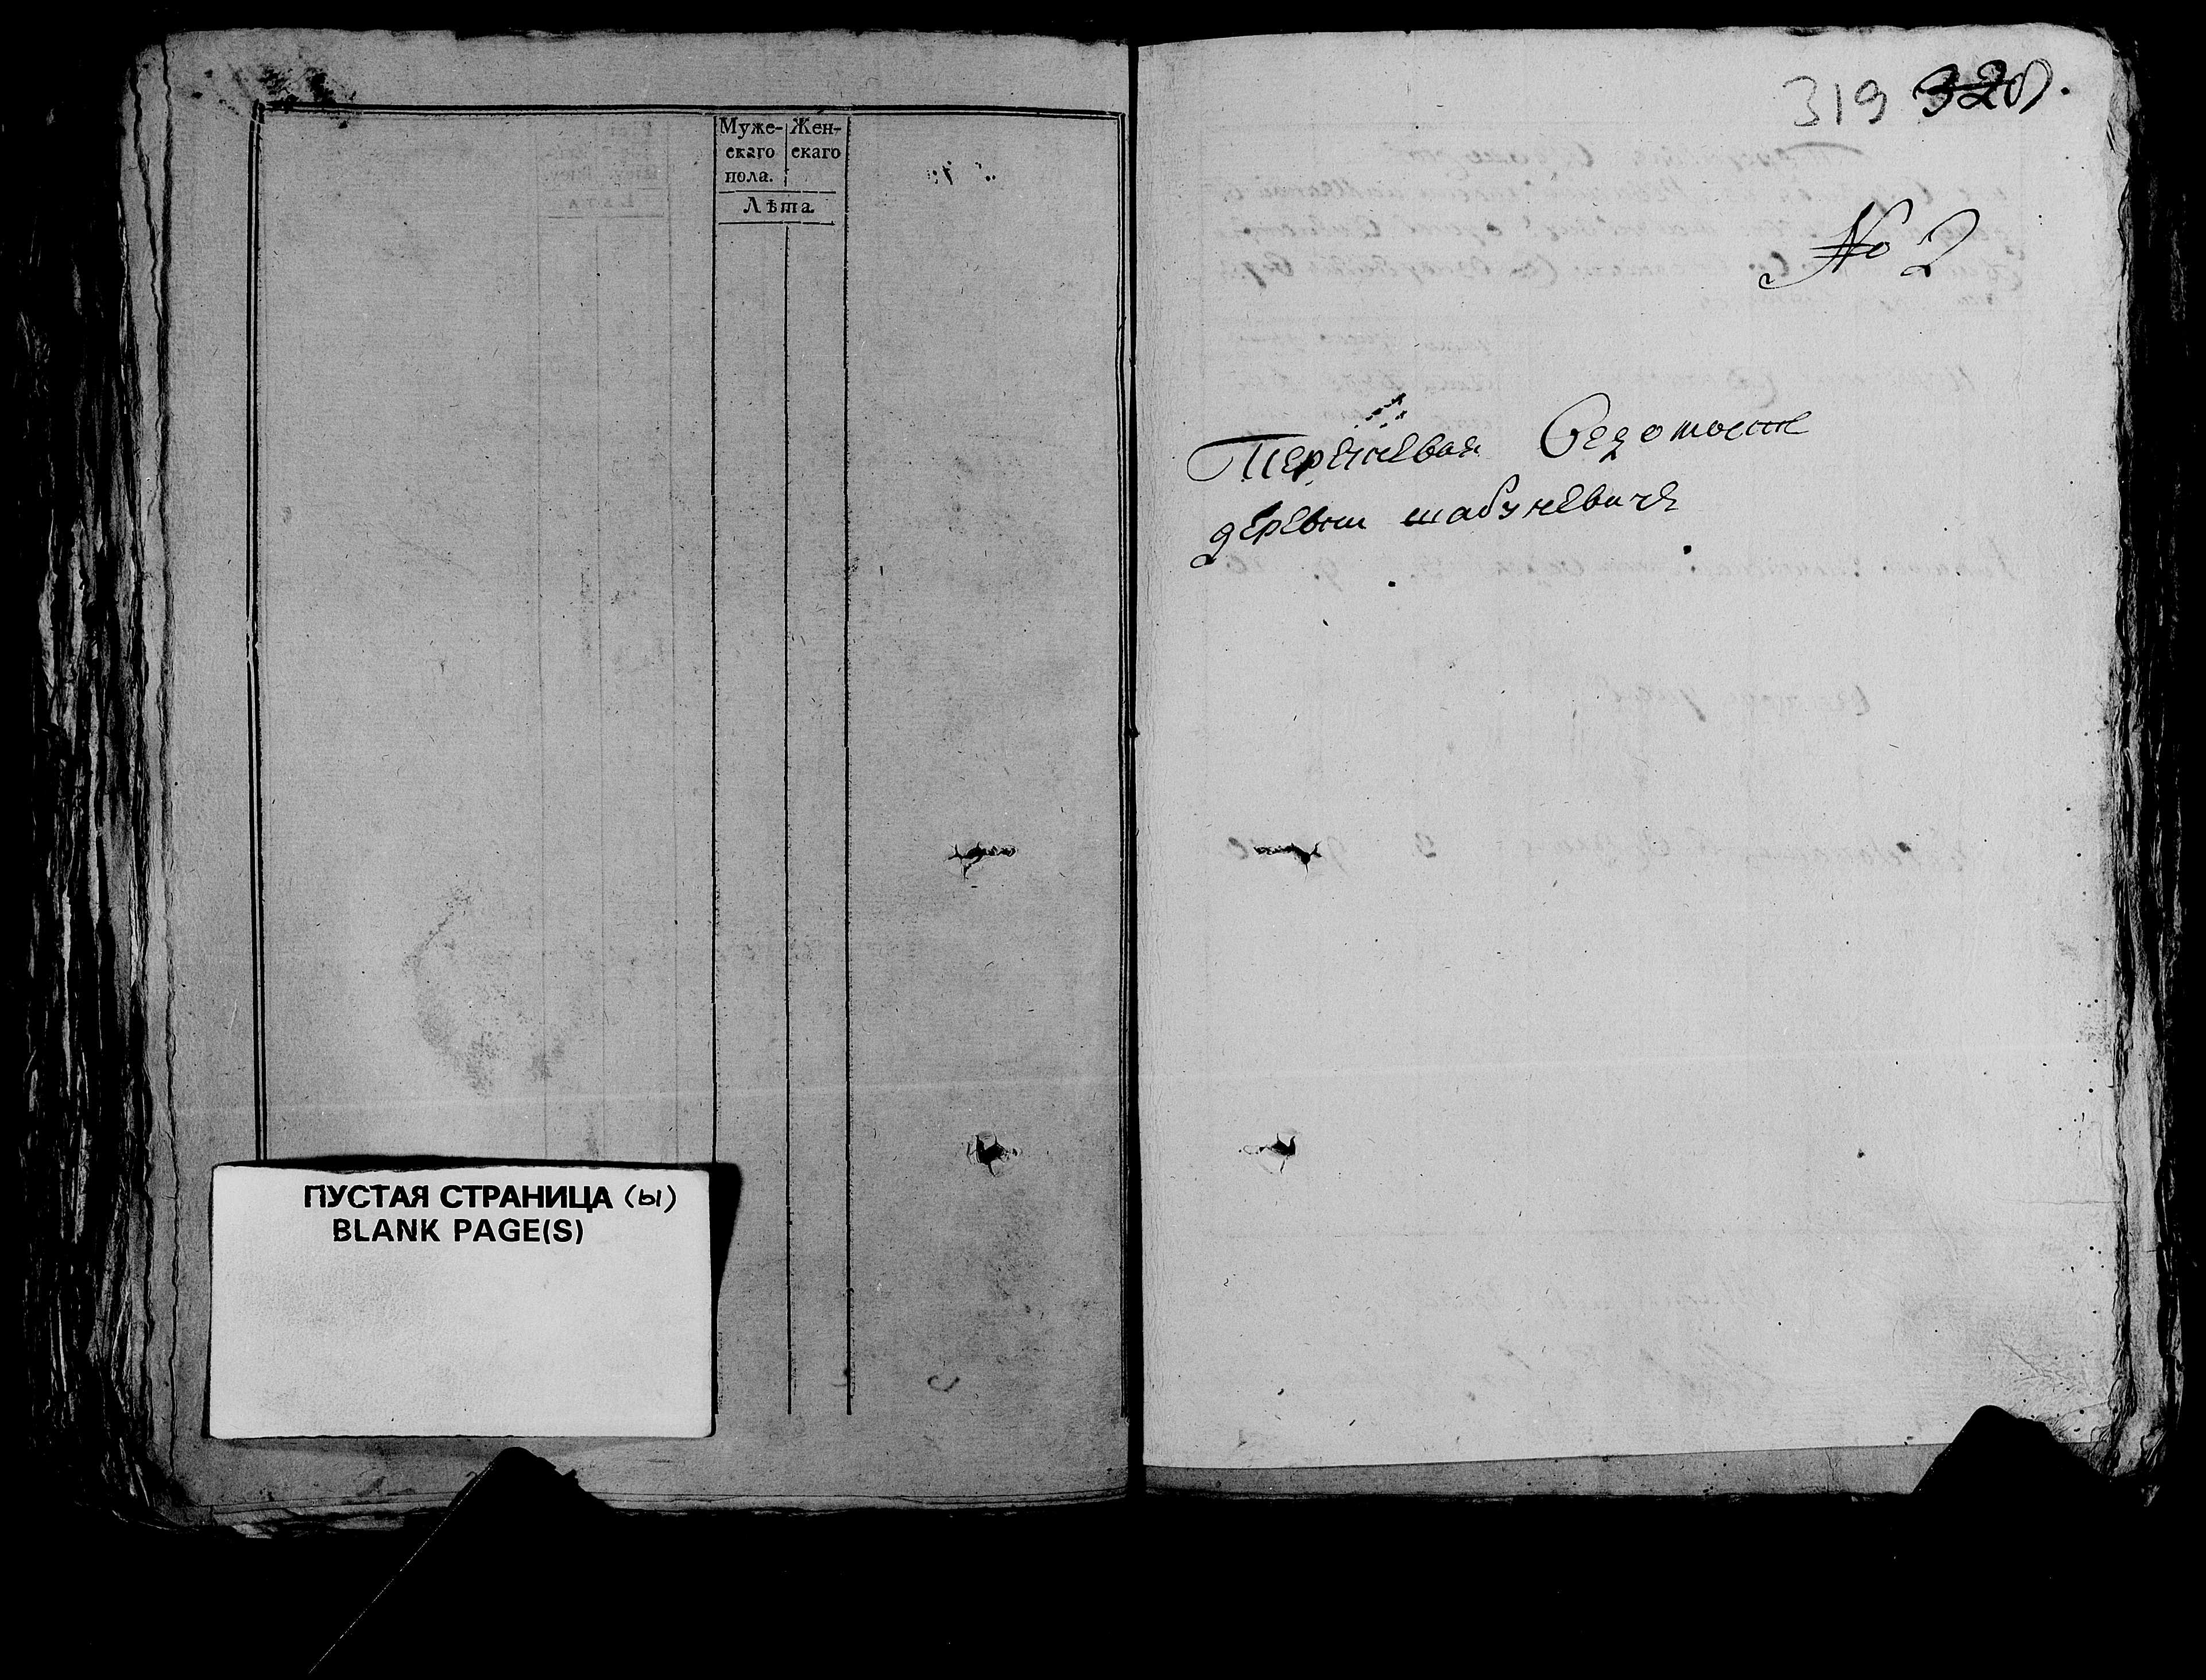 Муже- Жен-
скаго скаго
пола.
Лѣта
ПУСТАЯ СТРАНИЦА (ы)
BLANK PAGE(S)
319 320.
№ 2
Перечневая Ведомость
деревни шабуневичь